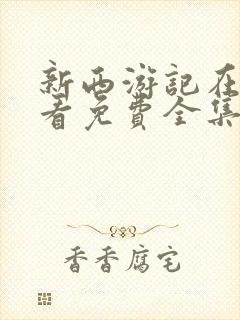 新西游記在
看免費全集
香香腐宅